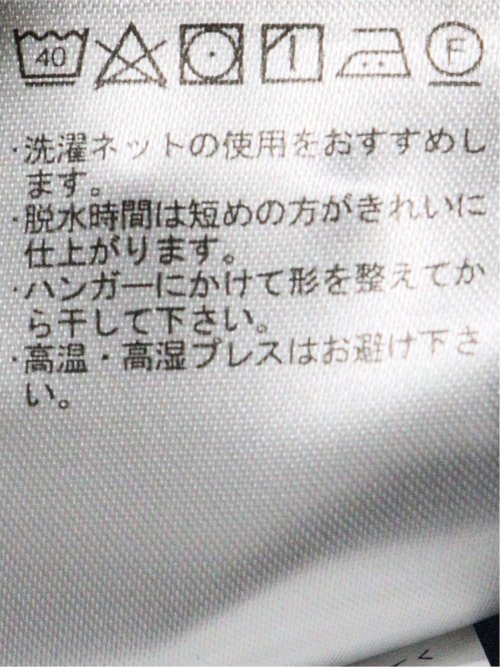 40 F
・洗濯ネットの使用をおすすめし
ます。
・脱水時間は短めの方がきれいに
仕上がります。
・ハンガーにかけて形を整えてか
ら干して下さい。
・高温・高湿プレスはお避け下さ
い。